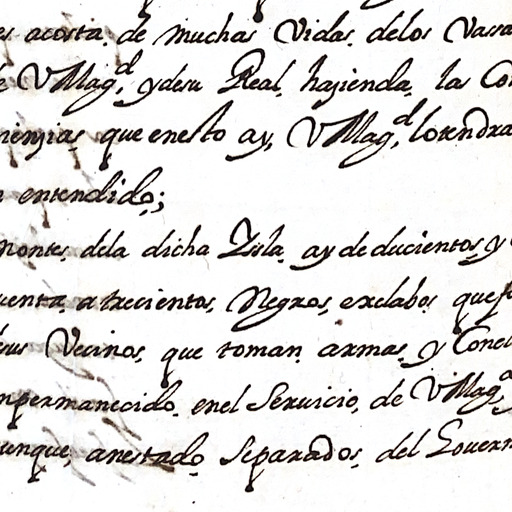 es acosta. de muchas Vidas. delos Vasa
e VMagd. ydesu Real. hazienda. las Con
nienzias. que enesto ay, VMagd. lotendra
n entendido;
montes. dela dicha Ysla. ay de ducientos, y
uenta. a trecientos, Negros, esclabos que
sus Vecinos, que toman armas, y Con
npermanecido. enel Seruicio, de VMagd,
unque, anestado Separados, del Gouern